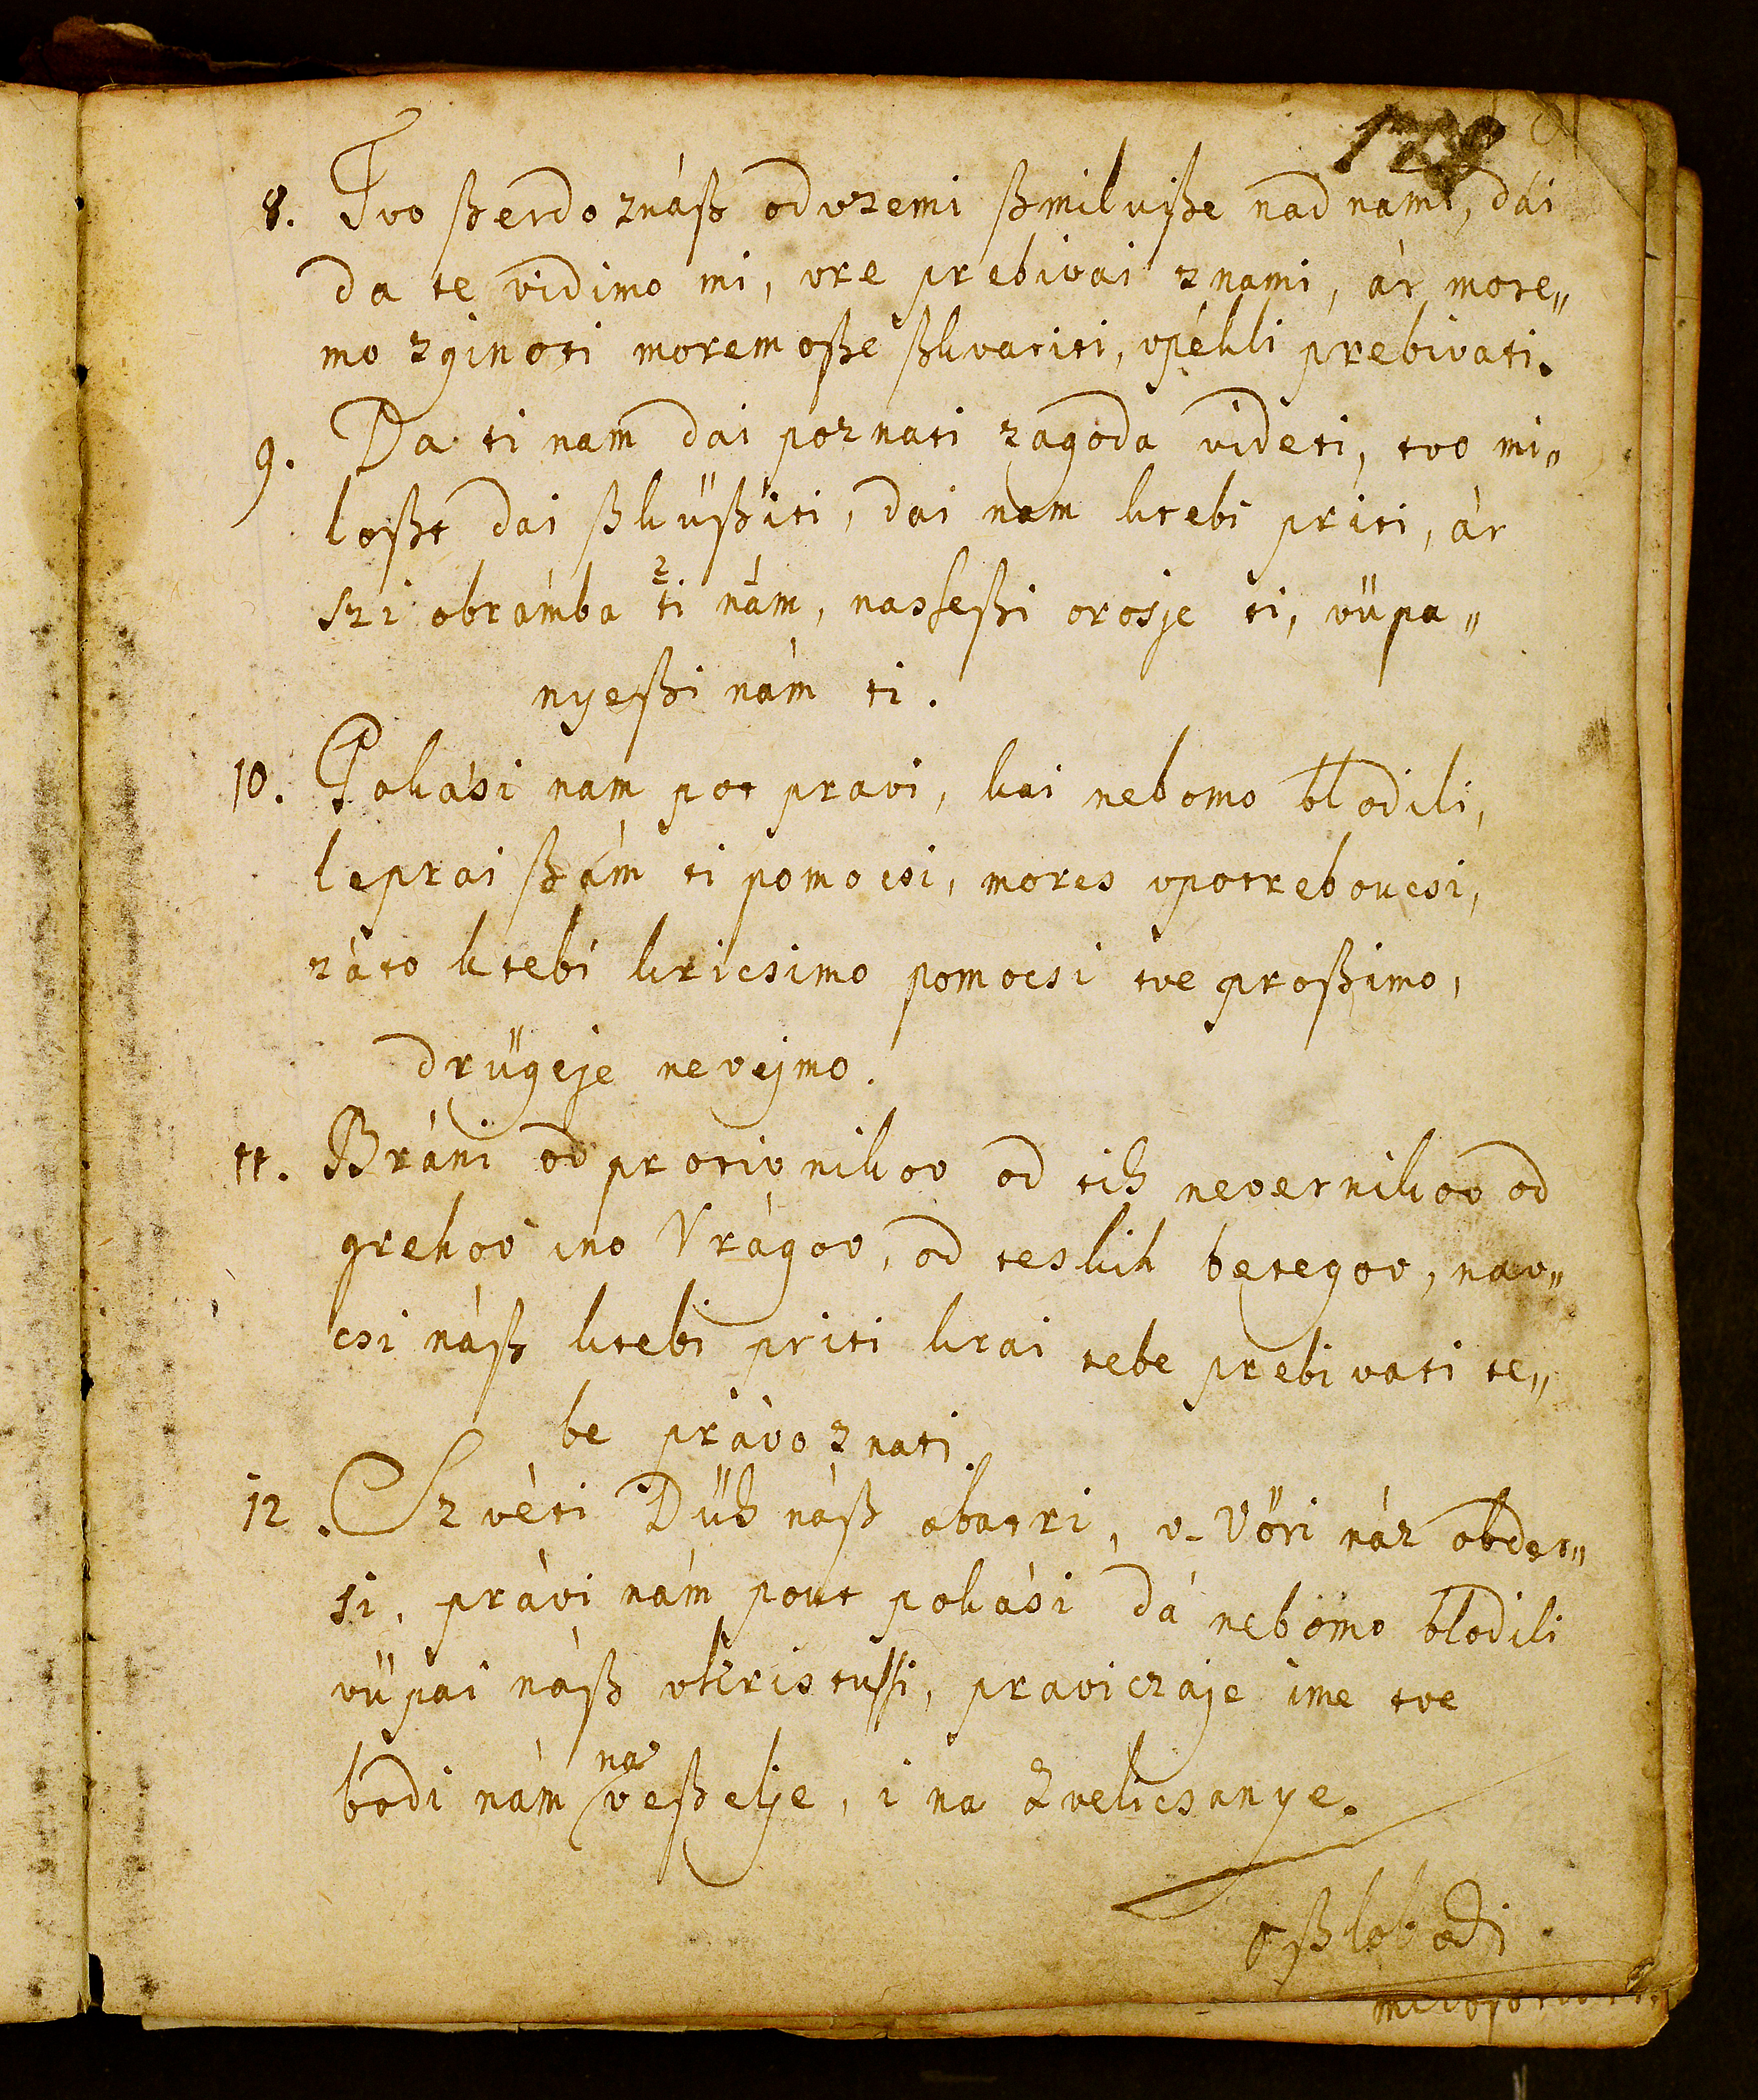 8. Tvo ßerdo znáß odvzemi ßmilujße nad nami, dái
da te vidimo mi, vre prebivai znami, ár more„
mo zginoti moremoße ßkvariti, vpékli prebivati.
9. Da ti nam dai poznati zagoda videti, tvo mi„
loßt dai ßküßiti, dai nam ktebi priti, ár
szi obrámba ti nám, nasseßi orosje ti, vüpa„
2 1
nyeßi nám ti.
10. Pokási nam pot pravi, kai nebomo blodili,
leprai ßám ti pomocsi, mores vpotreboucsi,
záto ktebi kricsimo pomocsi tve proßimo,
drügeje nevejmo.
11. Bráni od protivnikov od tih nevernikov od
grehov ino Vrágov, od teskih betegov, nav„
csi náß ktebi priti krai tebe prebivati te„
be právo znati.
12. Szvéti Düh náß obatri, v-Vöri náz obder„
si, právi nám pout pokási dá nebomo blodili
vüpai náß vkristussi, praviczaje ime tve
bodi nám na veßelje, i na zvelicsanye.
oßlobodi.